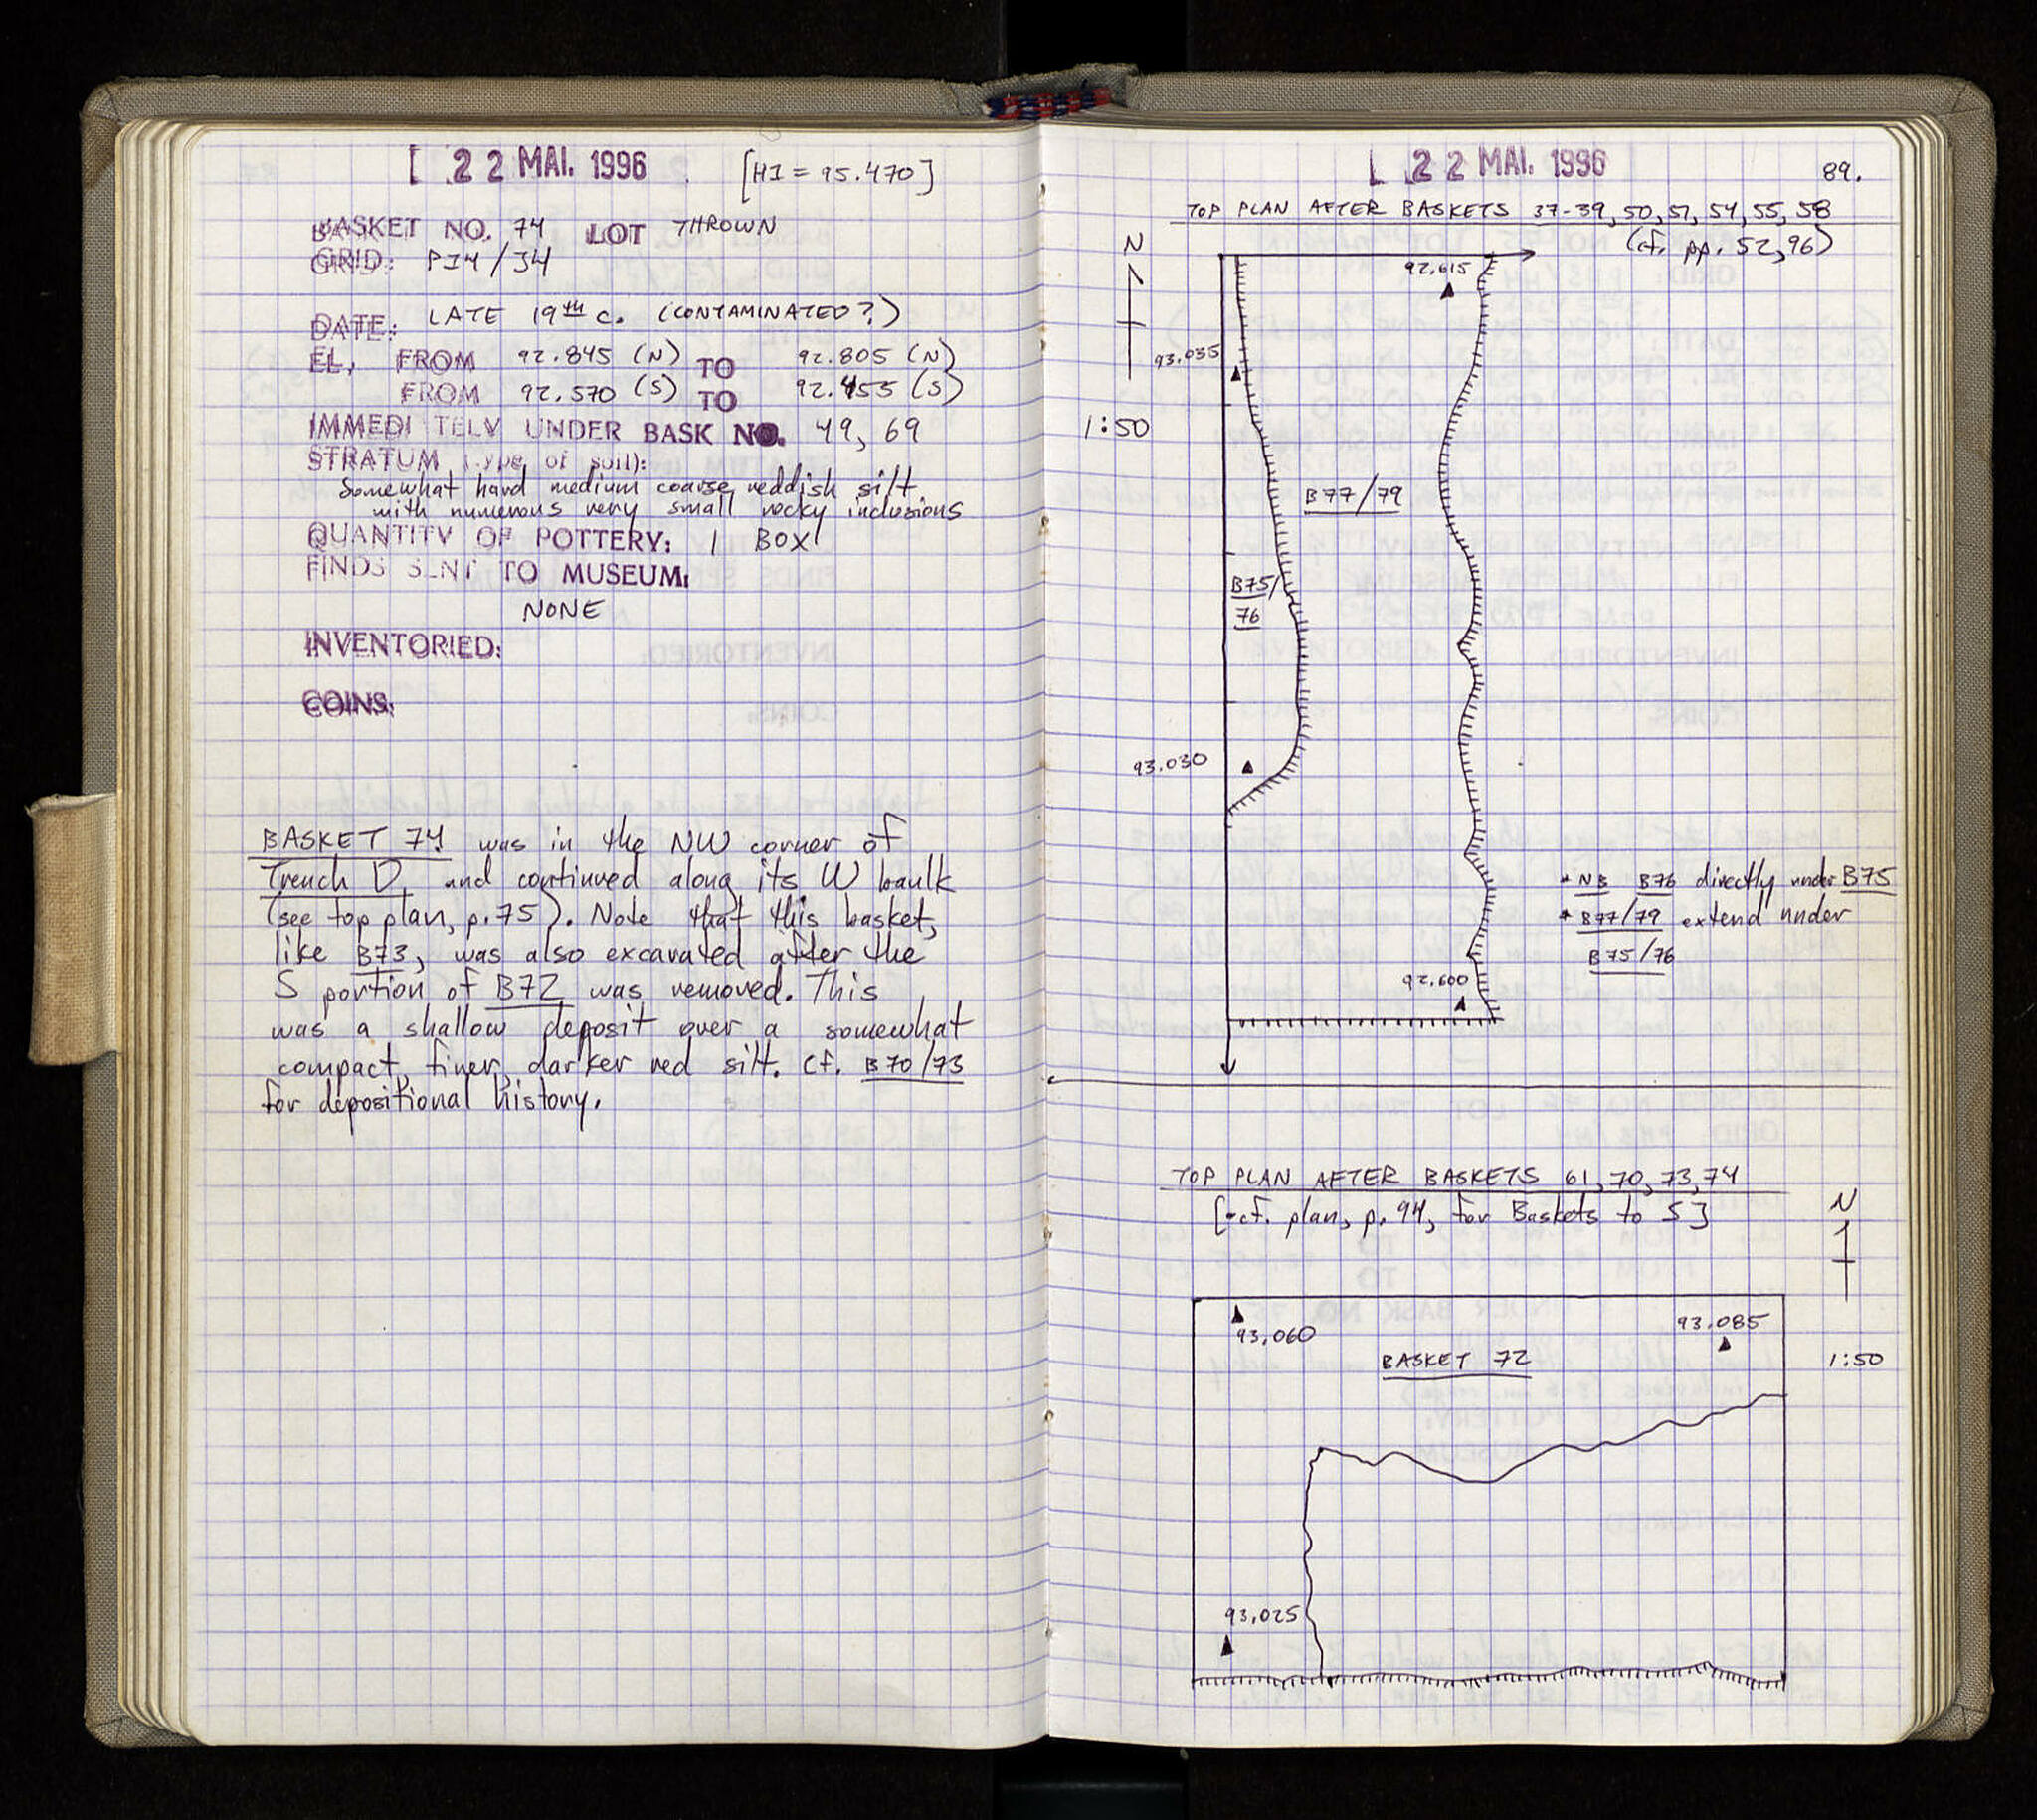 [ 22 MAI. 1996 [HI = 95.470]
BASKET NO. 74 LOT THROWN
GRID: PI4/J4
DATE: LATE 19th C. (CONTAMINATED?)
EL, FROM 92.845 (N) TO 92.805 (N)
FROM 92.570 (S) TO 92.455 (S)
IMMEDI TELV UNDER BASK NO. 49, 69
STRATUM (type of soil):
Somewhat hard medium coarse reddish silt
with numerous very small rocky inclusions
QUANTITY OF POTTERY: 1 BOX
FINDS SENT TO MUSEUM:
NONE
INVENTORIED:
COINS:
BASKET 74 was in the NW corner of
Trench D, and continued along its W baulk
(see top plan, p.75). Note that this basket,
like B73, was also excavated after the
S portion of B72 was removed. This
was a shallow deposit over a somewhat
compact, finer, darker red silt. Cf. B70/73
for depositional history.
22 MAI. 1996 89.
TOP PLAN AFTER BASKETS 37-39, 50, 51, 54, 55, 58
(cf. pp. 52, 96)
N
92.615
93.035
1:50
B77/79
B75/
76
93.030
* NB B76 directly under B75
* B77/79 extend under
B75/76
92.600
TOP PLAN AFTER BASKETS 61, 70, 73, 74
[-cf. plan, p. 94, for Baskets to S]
N
93.060
93.085
BASKET 72
1:50
93.025